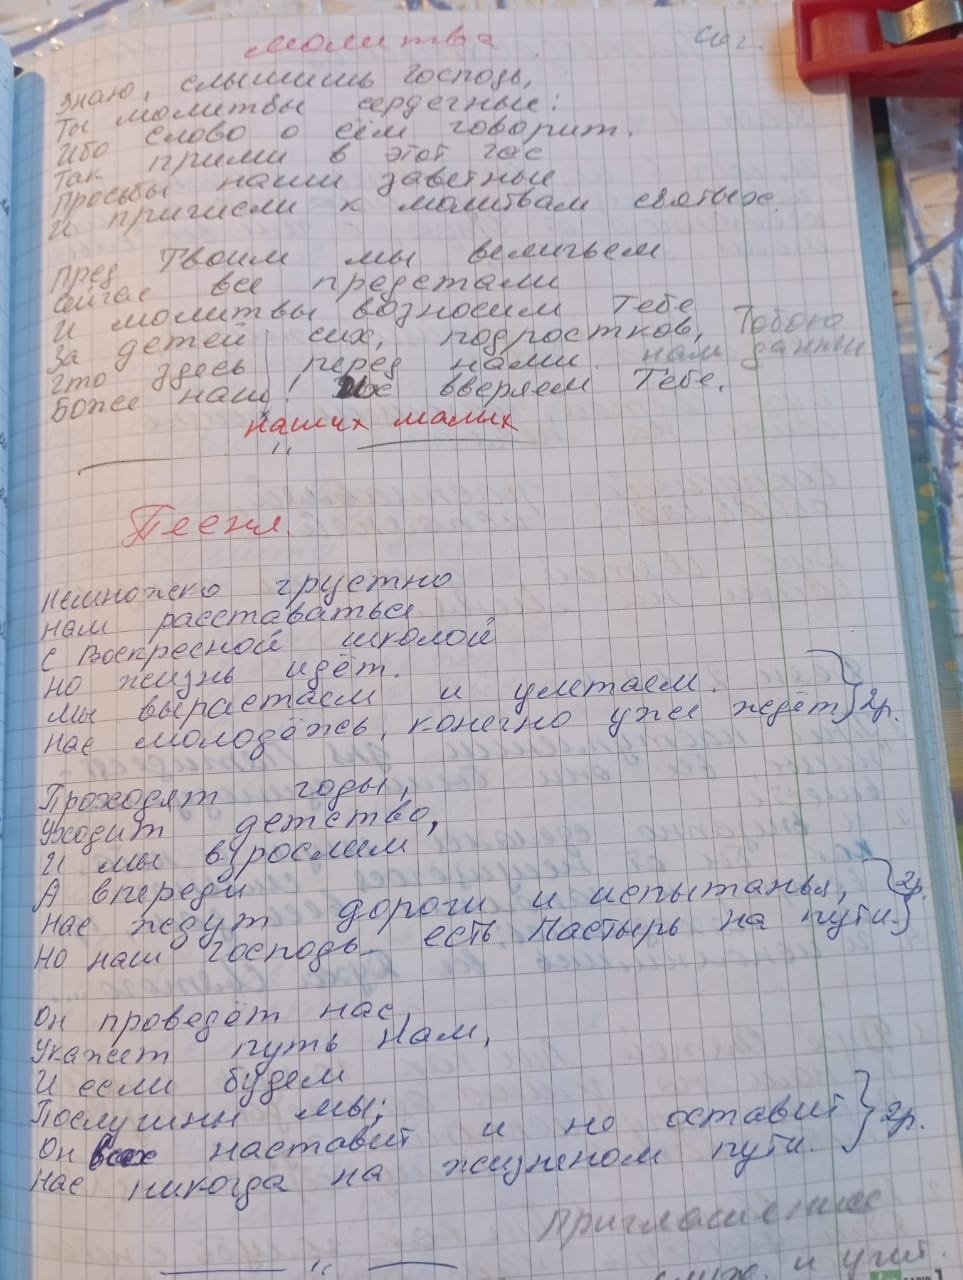 Молитва
Знаю, слышишь Господь,
Ты молитвы сердечные:
Ибо слово о сём говорит.
Так прими в этот час
Просьбы наши заветные
И причисли к молитвам святых.
Пред Твоим мы величьем
Сейчас все предстали
И молитвы возносим Тебе
За детей сих, подростков, Тобою
Что здесь перед нами. нам данных
Боже наш! Их вверяем Тебе.
наших малых
"
Песня.
Немножко грустно
Нам расставаться
С Воскресной школой
Но жизнь идёт.
Мы вырастаем и улетаем.
Нас молодёжь, конечно уже ждёт } 2р.
Проходят годы,
Уходит детство,
И мы взрослим
А впереди
Нас ждут дороги и испытанья, } 2р.
Но наш Господь – есть Пастырь на пути.
Он проведёт нас,
Укажет путь Нам,
И если будем
Послушны мы;
Он всех наставит и но оставит } 2р.
Нас никогда на жизненом пути.
Приглашение
"
и учит.